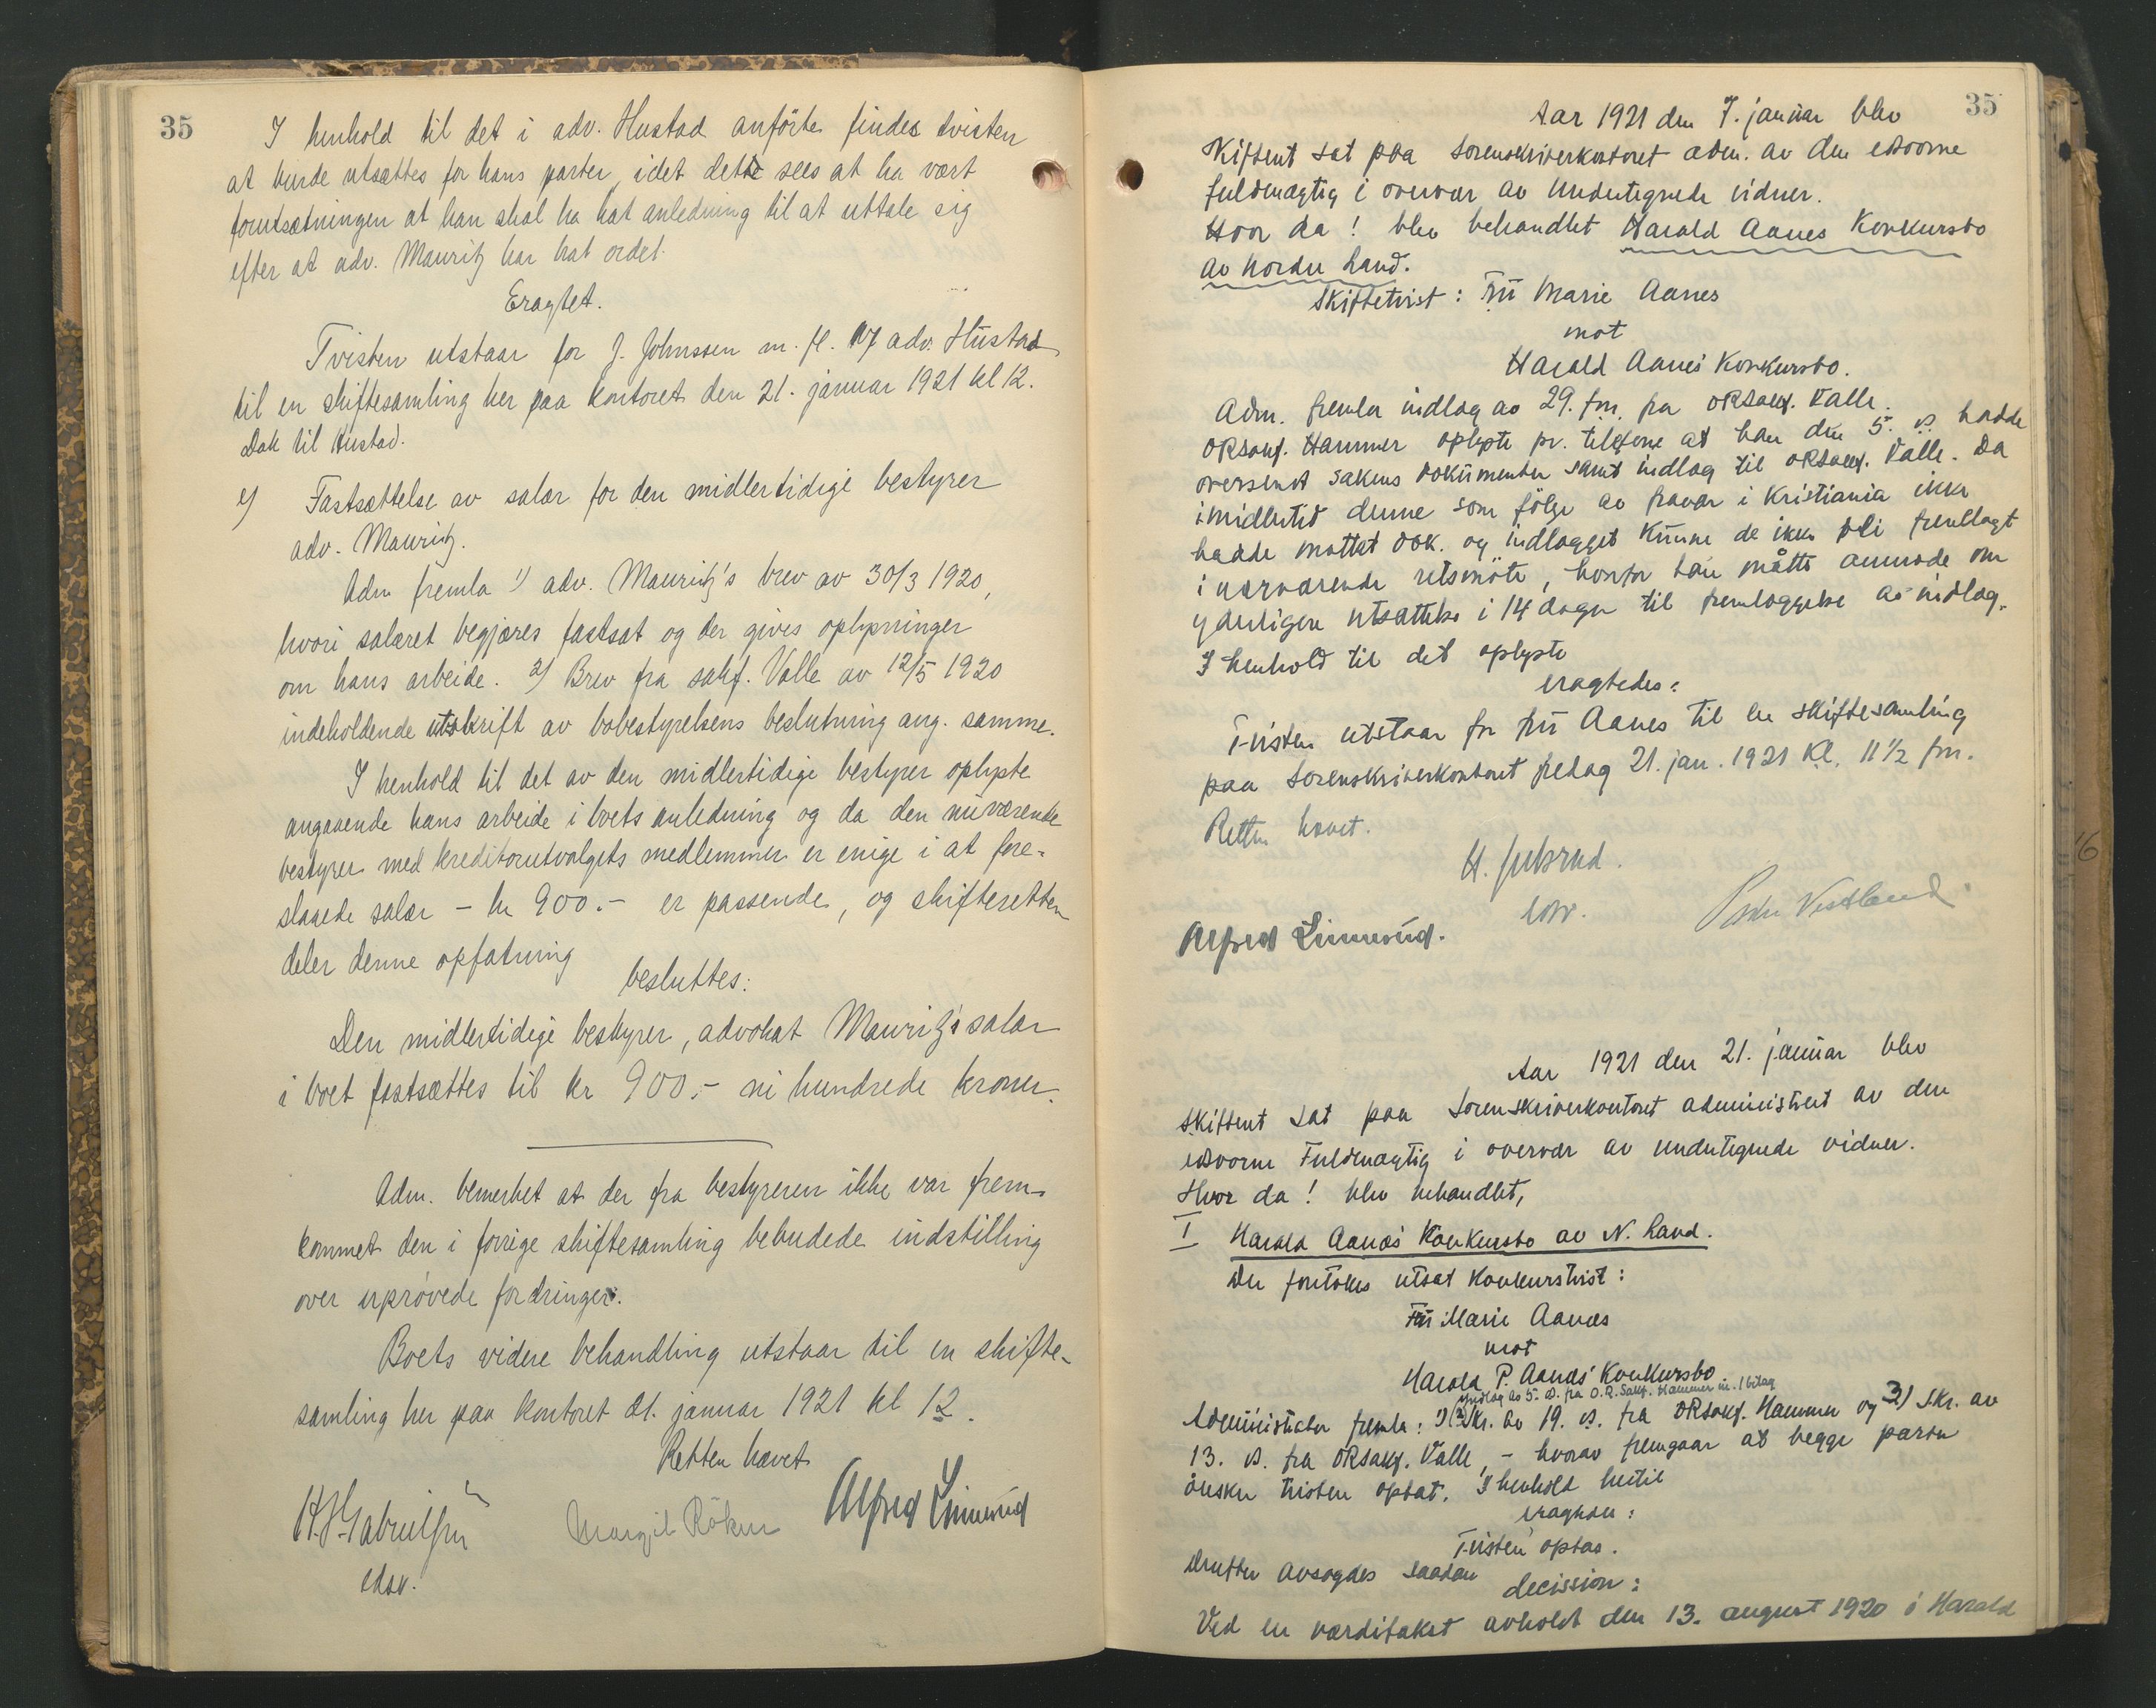 35
I henhold til det i adv. Hustad anførte findes tvisten
at burde utsættes for hans parter, idet dette sees at ha vært
forutsætningen at han skal ha hat anledning til at uttale sig
efter at adv. Mauritz har hat ordet.
Eragtet.
Tvisten utstaar for J. Johnssen m. fl. v/ adv. Hustad
til en skiftesamling her paa kontoret den 21. januar 1921 kl 12.
Dok til Hustad.
e) Fastsættelse av salær for den midlertidige bestyrer
adv. Mauritz.
Adm fremla 1) adv. Mauritz's brev av 30/3 1920,
hvori salæret begjæres fastsat og der gives oplysninger
om hans arbeide. 2) Brev fra sakf. Valle av 12/5 1920
indeholdende utskrift av bobestyrelsens beslutning ang. samme.
I henhold til det av den midlertidige bestyrer oplyste
angaaende hans arbeide i boets anledning og da den nuværende
bestyrer med kreditorutvalgets medlemmer er enige i at fore-
slaaede salær - kr 900.- er passende, og skifteretten
deler denne opfatning
besluttes:
Den midlertidige bestyrer, advokat Mauritz's salær
i boet fastsættes til kr 900.- ni hundrede kroner.
Adm. bemerket at der fra bestyreren ikke var frem-
kommet den i forrige skiftesamling bebudede indstilling
over uprøvede fordringer.
Boets videre behandling utstaar til en skifte-
samling her paa kontoret 21. januar 1921 kl 12.
Retten hævet
Margit Röken Alfred Linnerud
edsv.
35
Aar 1921 den 7. januar blev
skifteret sat paa sorenskriverkontoret adm. av den edsvorne
fuldmægtig i overvær av undertegnede vidner.
Hvor da! blev behandlet Harald Aanes Konkursbo
av Nordre Land.
Skiftetvist: Fru Marie Aanes
mot
Harald Aanes Konkursbo.
Adm. fremla indlæg av 29. f.m. fra ORsakf. Valle.
ORsakf. Hammer oplyste pr. telefone at han den 5. ds. hadde
oversendt sakens dokumenter samt indlæg til ORsakf. Valle. Da
imidlertid denne som følge av fravær i Kristiania ikke
hadde mottat dok. og indlægget kunne de ikke bli fremlagt
i nærværende retsmøte, hvorfor han måtte anmode om
yderligere utsættelse i 14 dager til fremlæggelse av indlæg.
I henhold til det oplyste
eragtedes:
Tvisten utstaar for fru Aanes til en skiftesamling
paa Sorenskriverkontoret fredag 21. jan. 1921 Kl. 11 1/2 fm.
Retten hævet.
H. Gulsrud.
edsv.
Alfred Linnerud. Peder Vestland
Aar 1921 den 21. januar blev
skifteret sat paa Sorenskriverkontoret administrert av den
edsvorne Fuldmægtig i overvær av undertegnede vidner.
Hvor da! blev behandlet,
I Harald Aanæs' Konkursbo av N. Land.
Der foretokes utsat Konkurstvist:
Fru Marie Aanæs
mot
Harald P. Aanæs' Konkursbo
Indlæg av 5. ds. fra O.R.Sakf. Hammer m. 1 bilag
Administrator fremla: 1) (2) Skr. av 19. ds. fra ORsakf. Hammer og 3) skr. av
13. ds. fra ORsakf. Valle, - hvorav fremgaar at begge parter
ønsker tvisten optat. I henhold hertil
eragtedes:
Tvisten optas.
Derefter avsagdes saadan
decission:
Ved en værditakst avholdt den 13. august 1920 i Harald
16